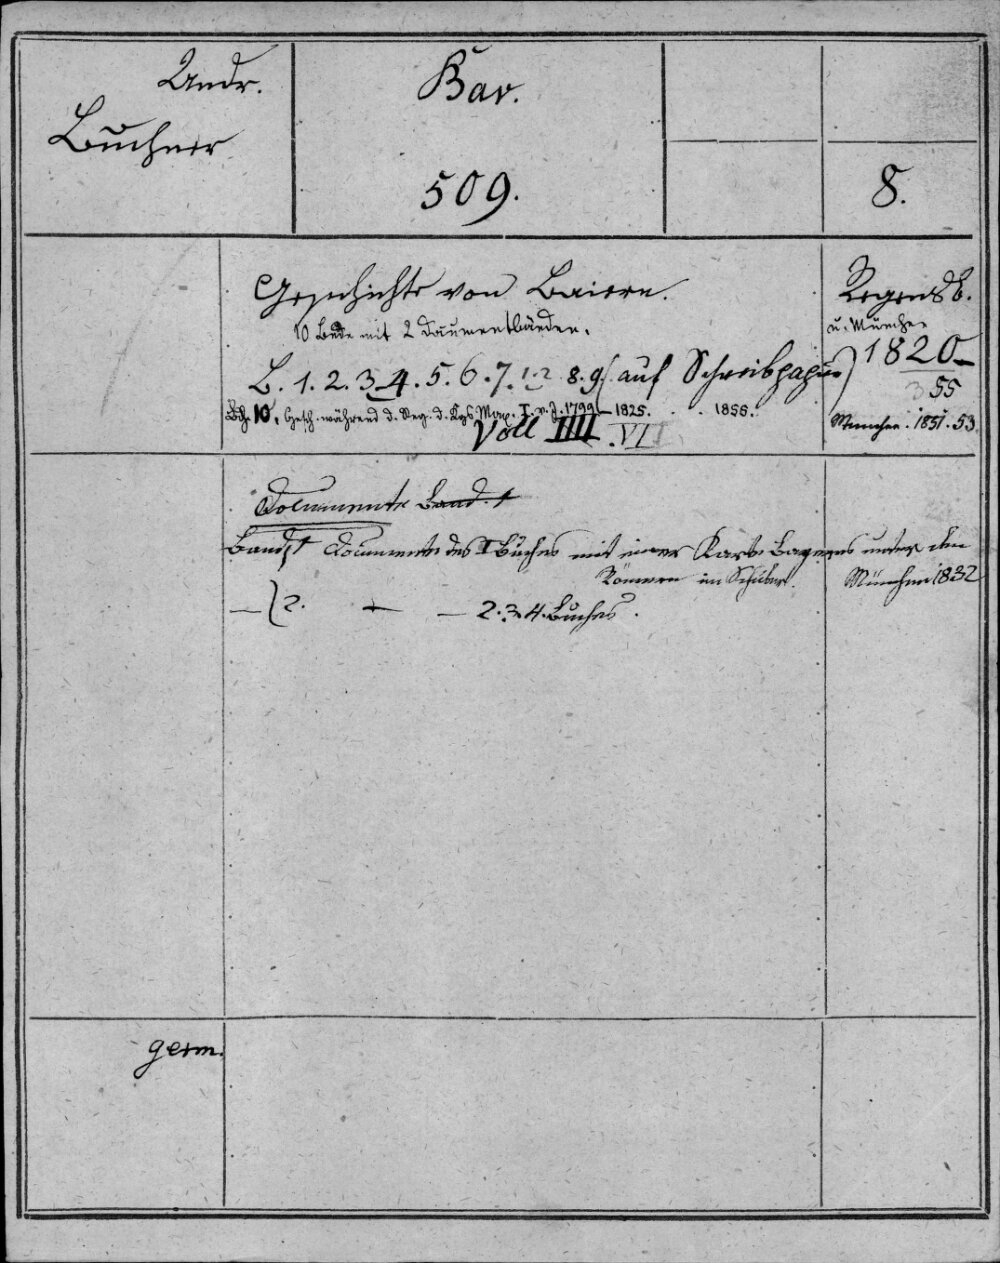 Andr.
Buchner
Bav.
509.
8.
Geschichte von Baiern.
10 Bnde mit 2 Documentbänden.
B. 1. 2. 3. 4. 5. 6. 7. 1. 2 8. 9. (auf Schreibpapier)
Bch. 10. Gesch. während d. Reg. d. Kgs Max. I. v. J. 1799–1825. . . 1855.
Voll IIII . VI
Regensb.
u. München
1820–
55
München . 1851. 53
Documente Band. 1
Band 1 Documente des I Buches mit einer Karte Bayerns unter den
Römern im Schuber. München 1832
— 2. — — 2. 3. 4. Buches.
germ.